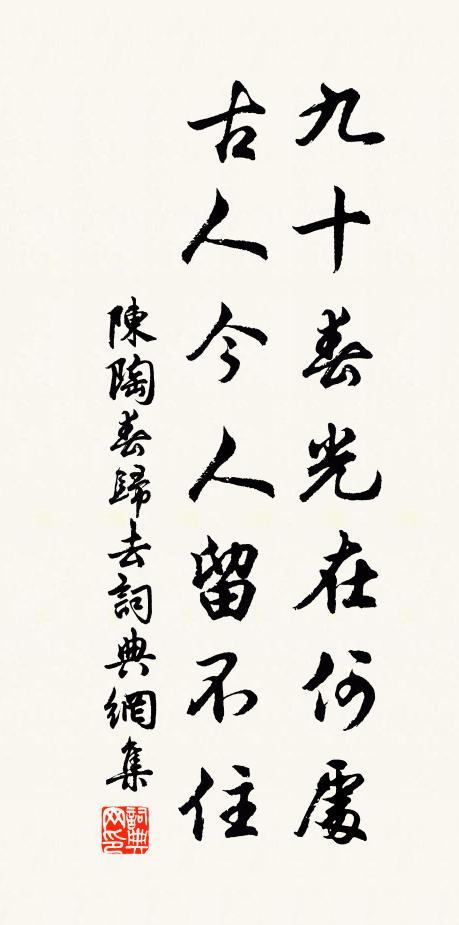 九十春光在何處
古人今人留不住
陳陶春歸去詞典網集
詞典网印